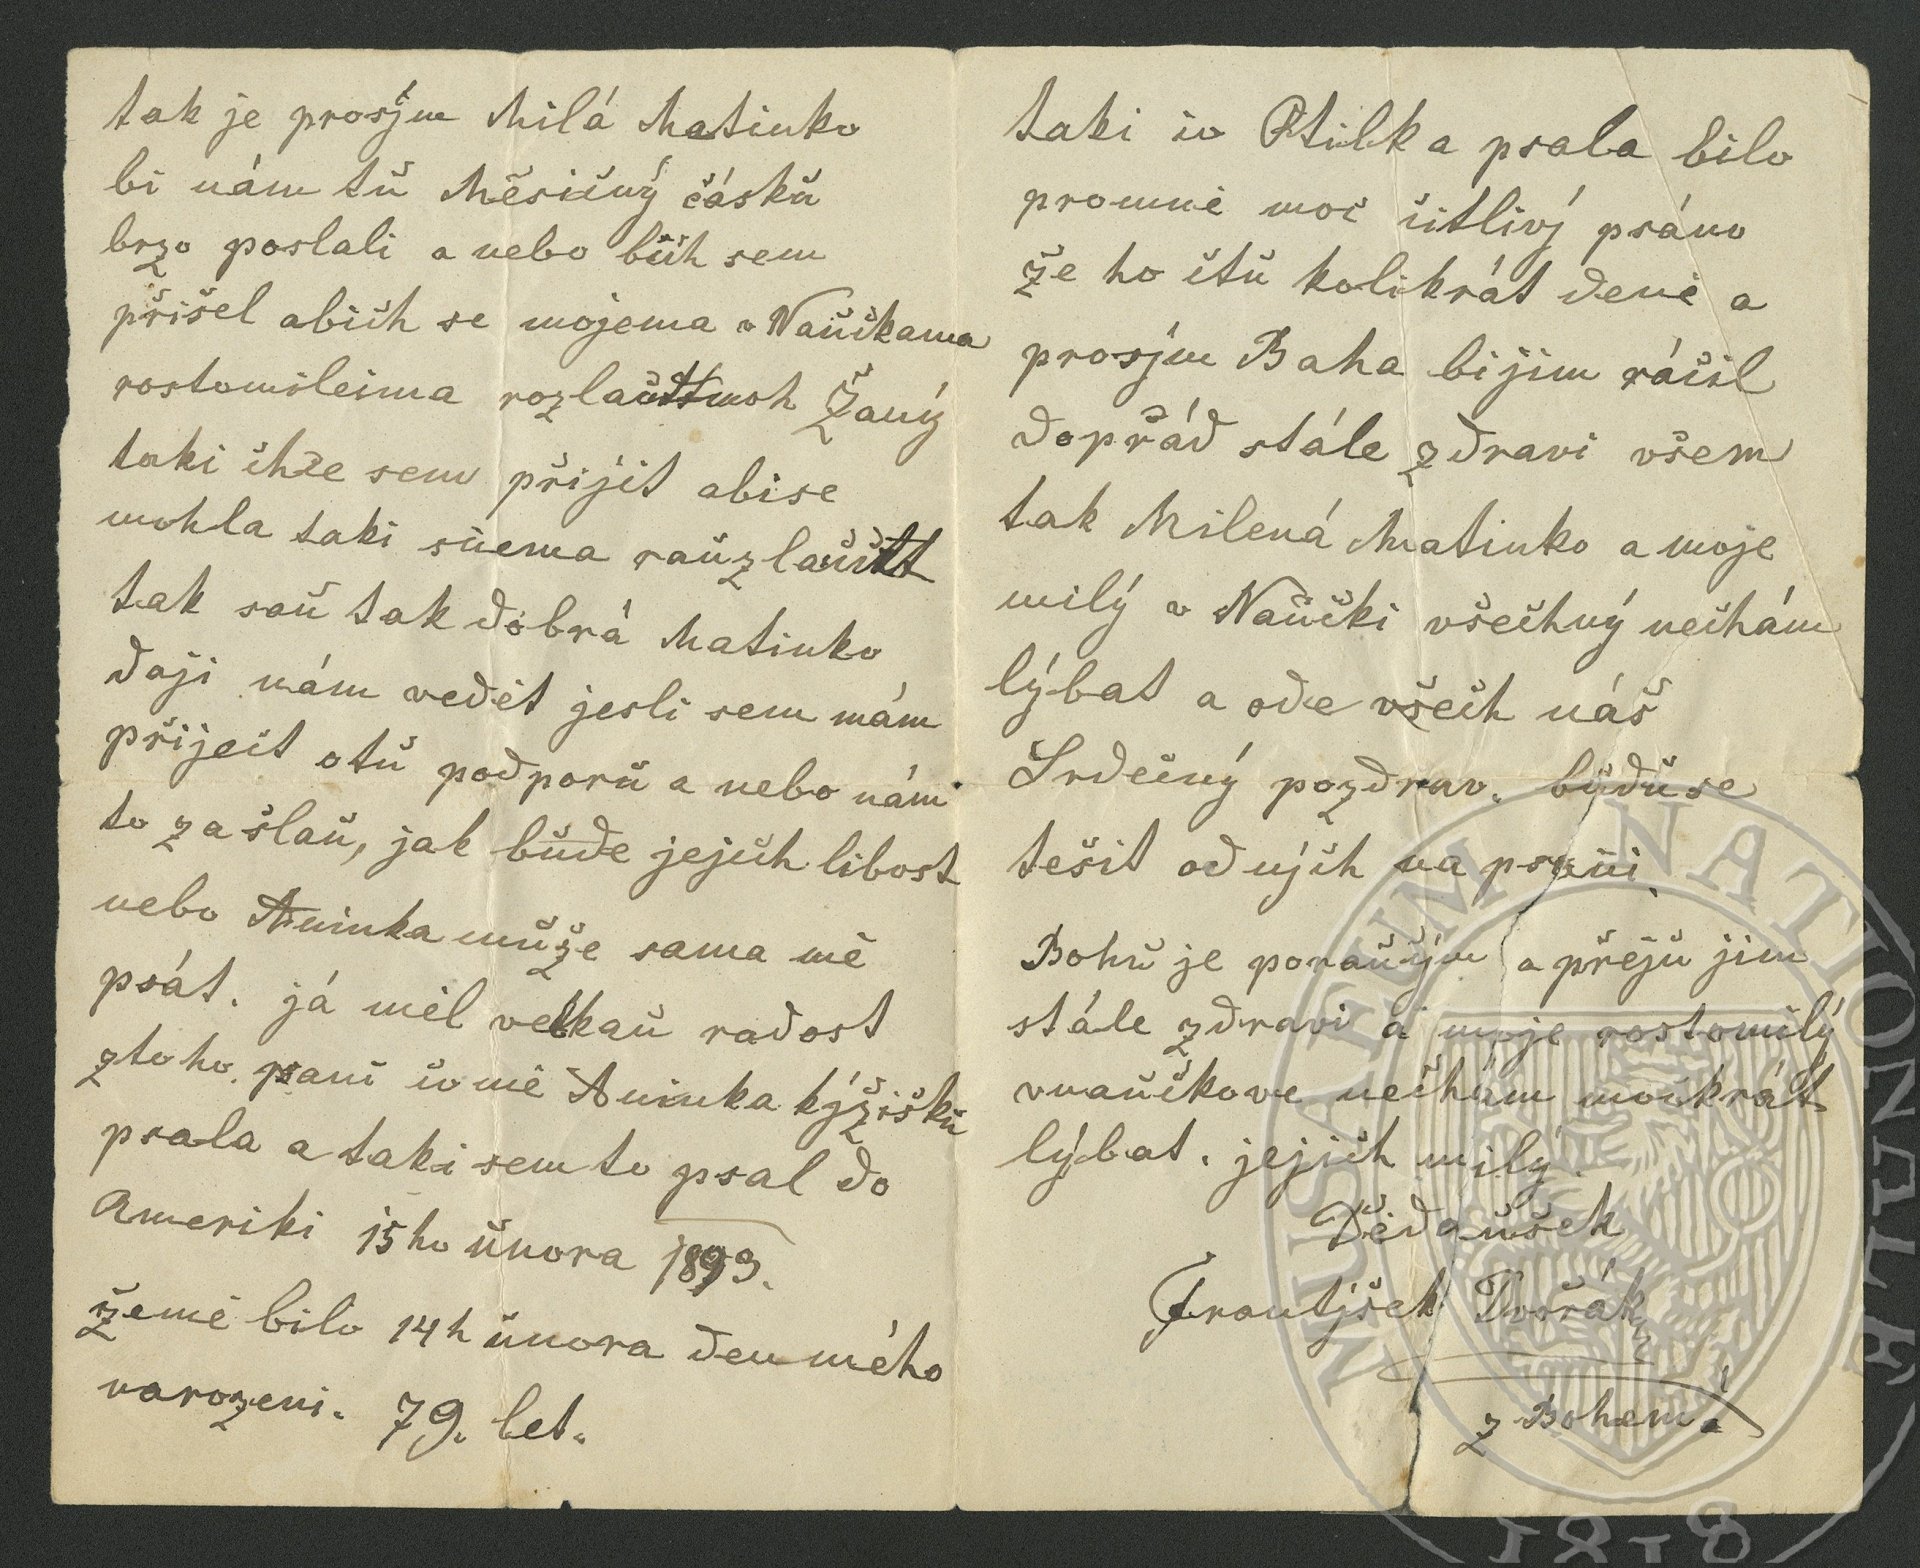 tak je prosjm Milá Matinko
bi nám tů Měsičný částků
brzo poslali a nebo bůh sem
přišel abich se mojema v Naučkama
rostomileima rozlaučit moh Žaný
taki chže sem přijit abise
mohla taki snema rauzlaučit
tak sau tak dobrá Matinko
daji nám vedět jesli sem mám
přijeit otů podporů a nebo nám
to zašlaů, jak bůde jejich libost
nebo Aninka může sama mě
psát. já měl velkaů radost
ztoho psani co mě Aninka kjžišků
psala a taki sem to psal do
Ameriki 15ho února 1893.
žemě bilo 14h února den mého
narozeni. 79. let.
taki co Otilka psala bilo
promně moc citlivj psáno
že ho čtů kolikrát deně a
prosjm Baha bi jim ráčil
dopřád stále zdravi všem
tak Milená Matinko a moje
milý v Naůčki všechný nechám
lýbat a ode všech náš
Srdečný pozdrav. bůdů se
tešit od njch na psani.
Bohů je poraůčjm a přejů jim
stále zdravi a moje rostomilý
vnaůčkove nechám mockrát
lýbat. jejich milý.
Dědaůšek
Frantjšek Dvořák
z Bohem!
MUSAEUM NATIONALE
1818